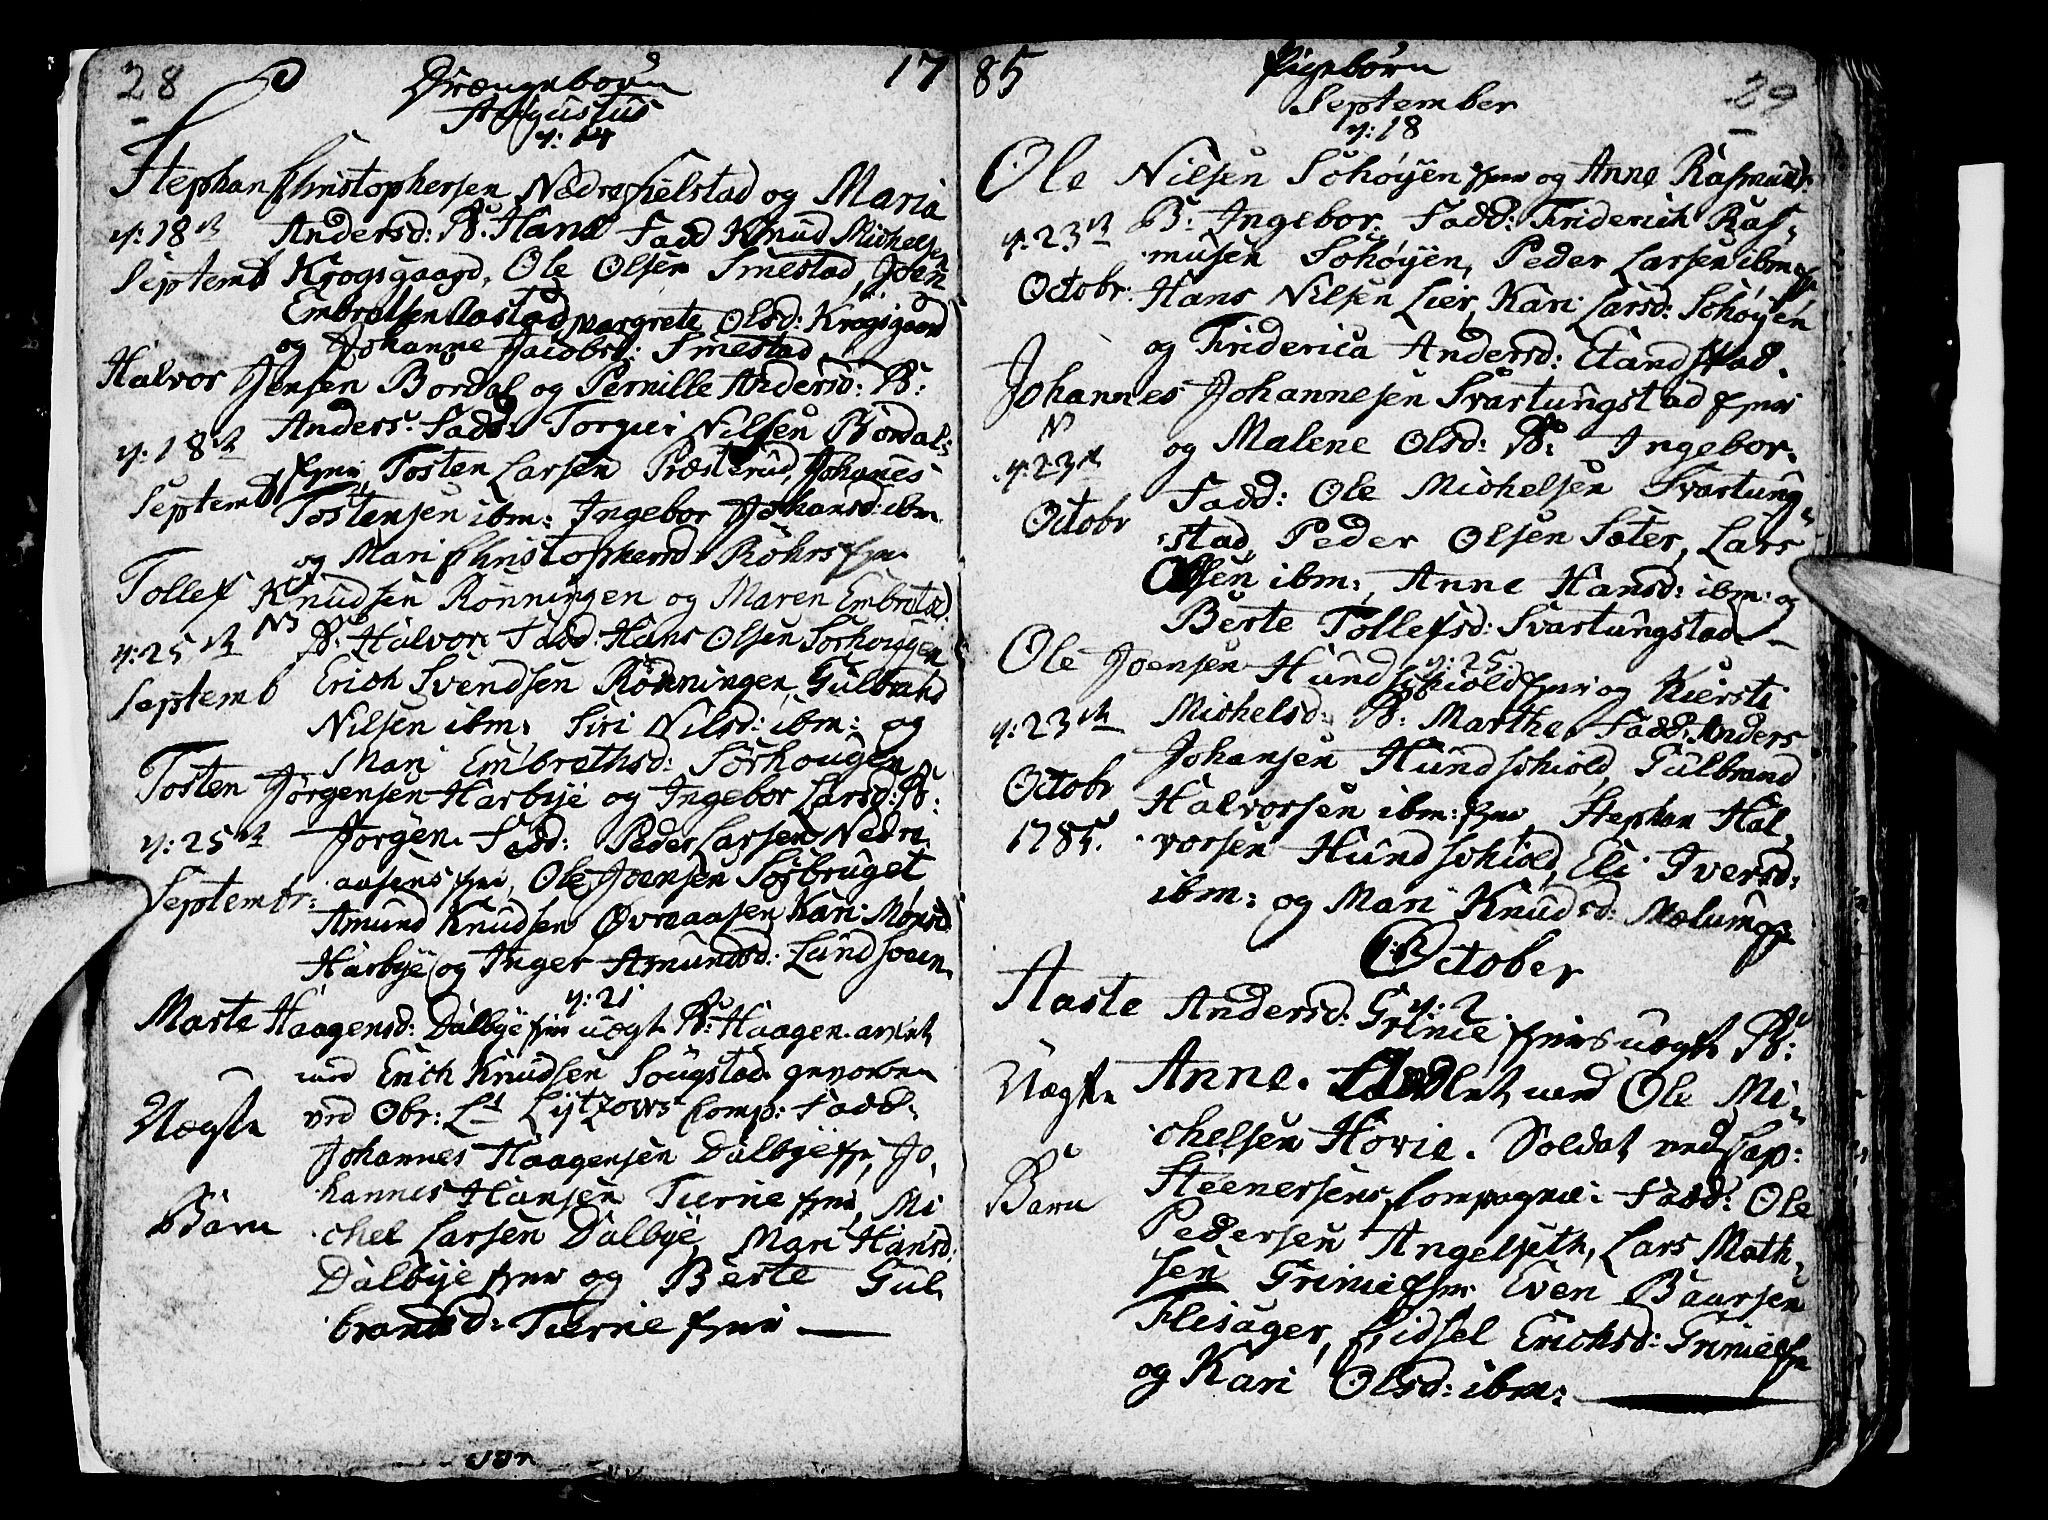 28 Drængebørn 17
Augustus
d: 14
Stephan Christophersen Nedre Kielstad og Maria
d: 18de Andersd: B: Hans Fadd Knud Michelsen
Septemb Krogsgaard, Ole Olsen Smestad, Joen
Embretsen Aastad, Margrete Olsd: Krogsgaard
og Johanne Jacobsd: Smestad
Halvor Jensen Bordal og Pernille Andersd: B:
Anders: Fadd: Torger Nilsen Bordal:
d: 18de Tosten Larsen Præsterud, Johanes
Septemb Tostensen ibm: Ingebor Johansd: ibm
og Mari Christophersd: Røhrs
Tollef Knudsen Rønningen og Maren Embretsd:
d: 25de B: Halvor: Fadd: Hans Olsen Sørhougen
Septemb Erich Svendsen Rønningen, Gulbrand
Nilsen ibm: Siri Nilsd: ibm: og
Mari Embrethsd: Sørhougen
Tosten Jørgensen Harbye og Ingebor Larsd: B:
d: 25de Jørgen. Fadd: Peder Larsen Nedre
Septembr: aasens, Ole Joensen Sørbruget
Amund Knudsen Øvreaasen, Kari Monsd:
Harbye og Inger Amundsd: Lundsveen
d: 21
Marte Haagensd: Dalbye uægte B: Haagen
med Erich Knudsen Sougstad
Uægte ved Obr: Lt Lytzows Comp: Fadd:
Johannes Haagensen Dalbye, Jo-
hannes Hansen Tierne, Mi
Barn chel Larsen Dalbye, Mari Hansd:
Dalbye og Berte Gul
brandsd: Tierne
85 Pigebørn 29
September
d: 18
Ole Nilsen Sohøyen og Anne Rasmusd:
d: 23de B: Ingebor: Fadd: Friderich Ras-
musen Sohøyen, Peder Larsen ibm
Octobr: Hans Nilsen Lier, Kari Larsd: Sohøyen
og Friderica Andersd: Elandstad.
Johannes Johannesen Svartungstad
og Malene Olsd: B: Ingebor.
d: 23de Fadd: Ole Michelsen Svartung-
Octobr stad, Peder Olsen Sæter, Lars
Olsen ibm:, Anne Hansd: ibm: og
Berte Tollefsd: Svartungstad
d: 25:
Ole Joensen Hundschiold og Kiersti
d: 23de Michelsd: B: Marthe. Fadd: Anders
Johansen Hundschiold, Gulbrand
Octobr Halvorsen ibm: Stephan Hal-
1785. vorsen Hundschiold, Eli Iversd:
ibm: og Mari Knudsd: Mælum
October
d: 2
Aaste Andersd: Grimie uægte B:
Uægte Anne. Avlet med Ole Mi-
chelsen Hovie. Soldat ved Cap:
Barn Steenersens Compagnie: Fadd: Ole
Pedersen Angelseth, Lars Math-
sen Grimie Even Baarsen
Flisager, Eidsel Erichsd: Grimie
og Kari Olsd: ibm: